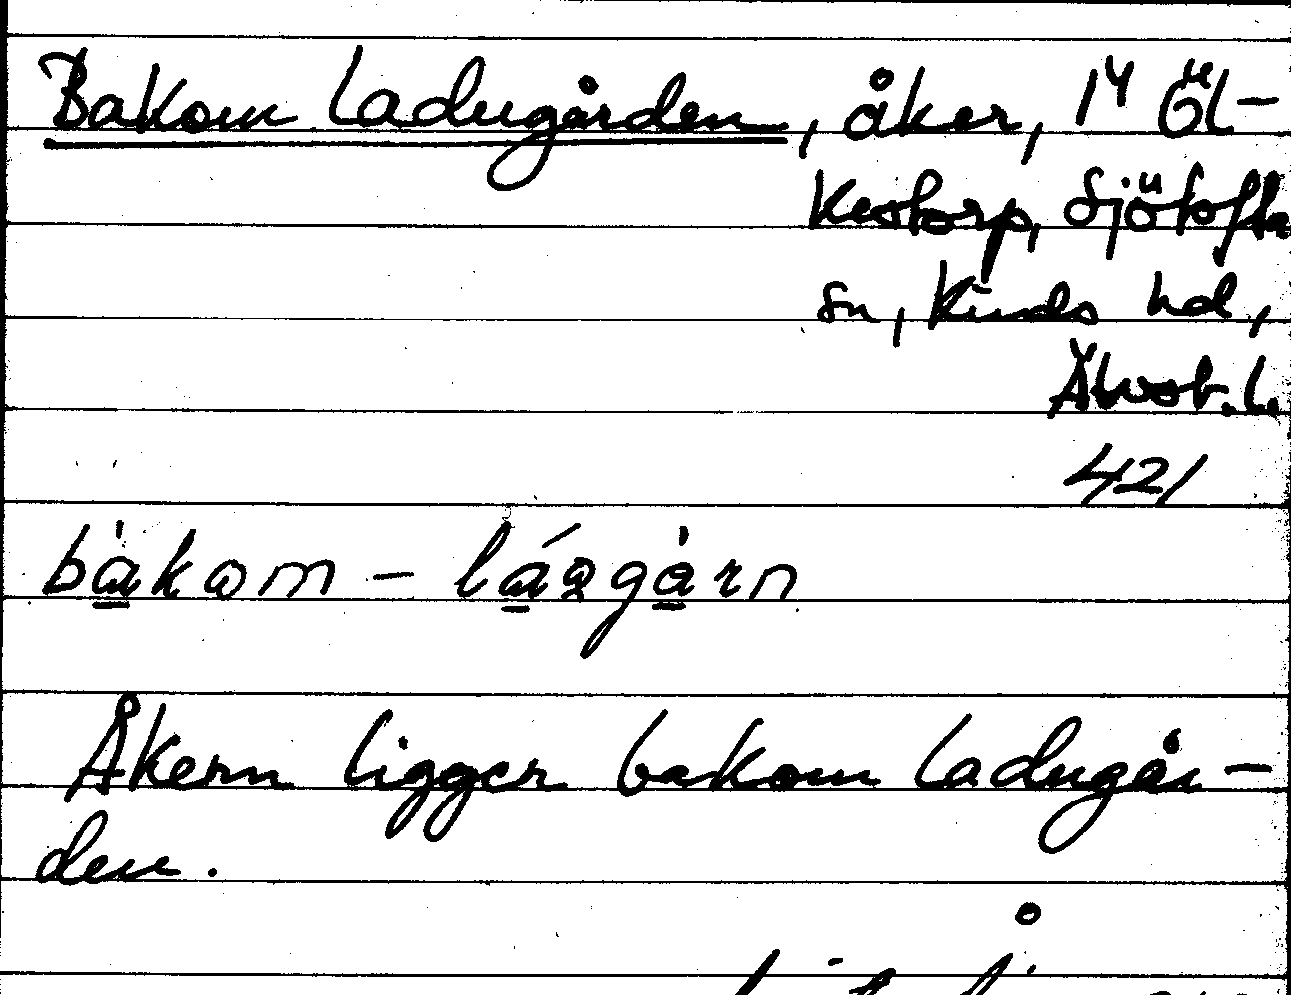 Bakom ladugården, åker, 1⁴ Öl-
kestorp, Sjötofta
sn, Kinds hd,
Älvsb. l.
421
bàkom – láɷgàrn
Åkern ligger bakom ladugår-
den.